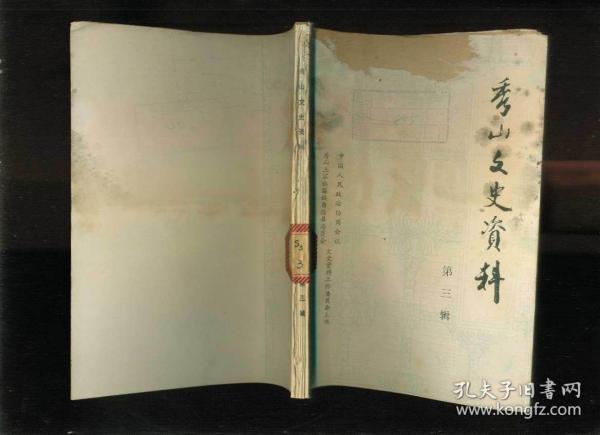 秀山文史資料
第三辑
中国人民政治协商会议
秀山土家族苗族自治县委员会 文史资料工作委员会主编
秀山文史资
S3
3
三辑
孔夫子旧书网
www.kongfz.com